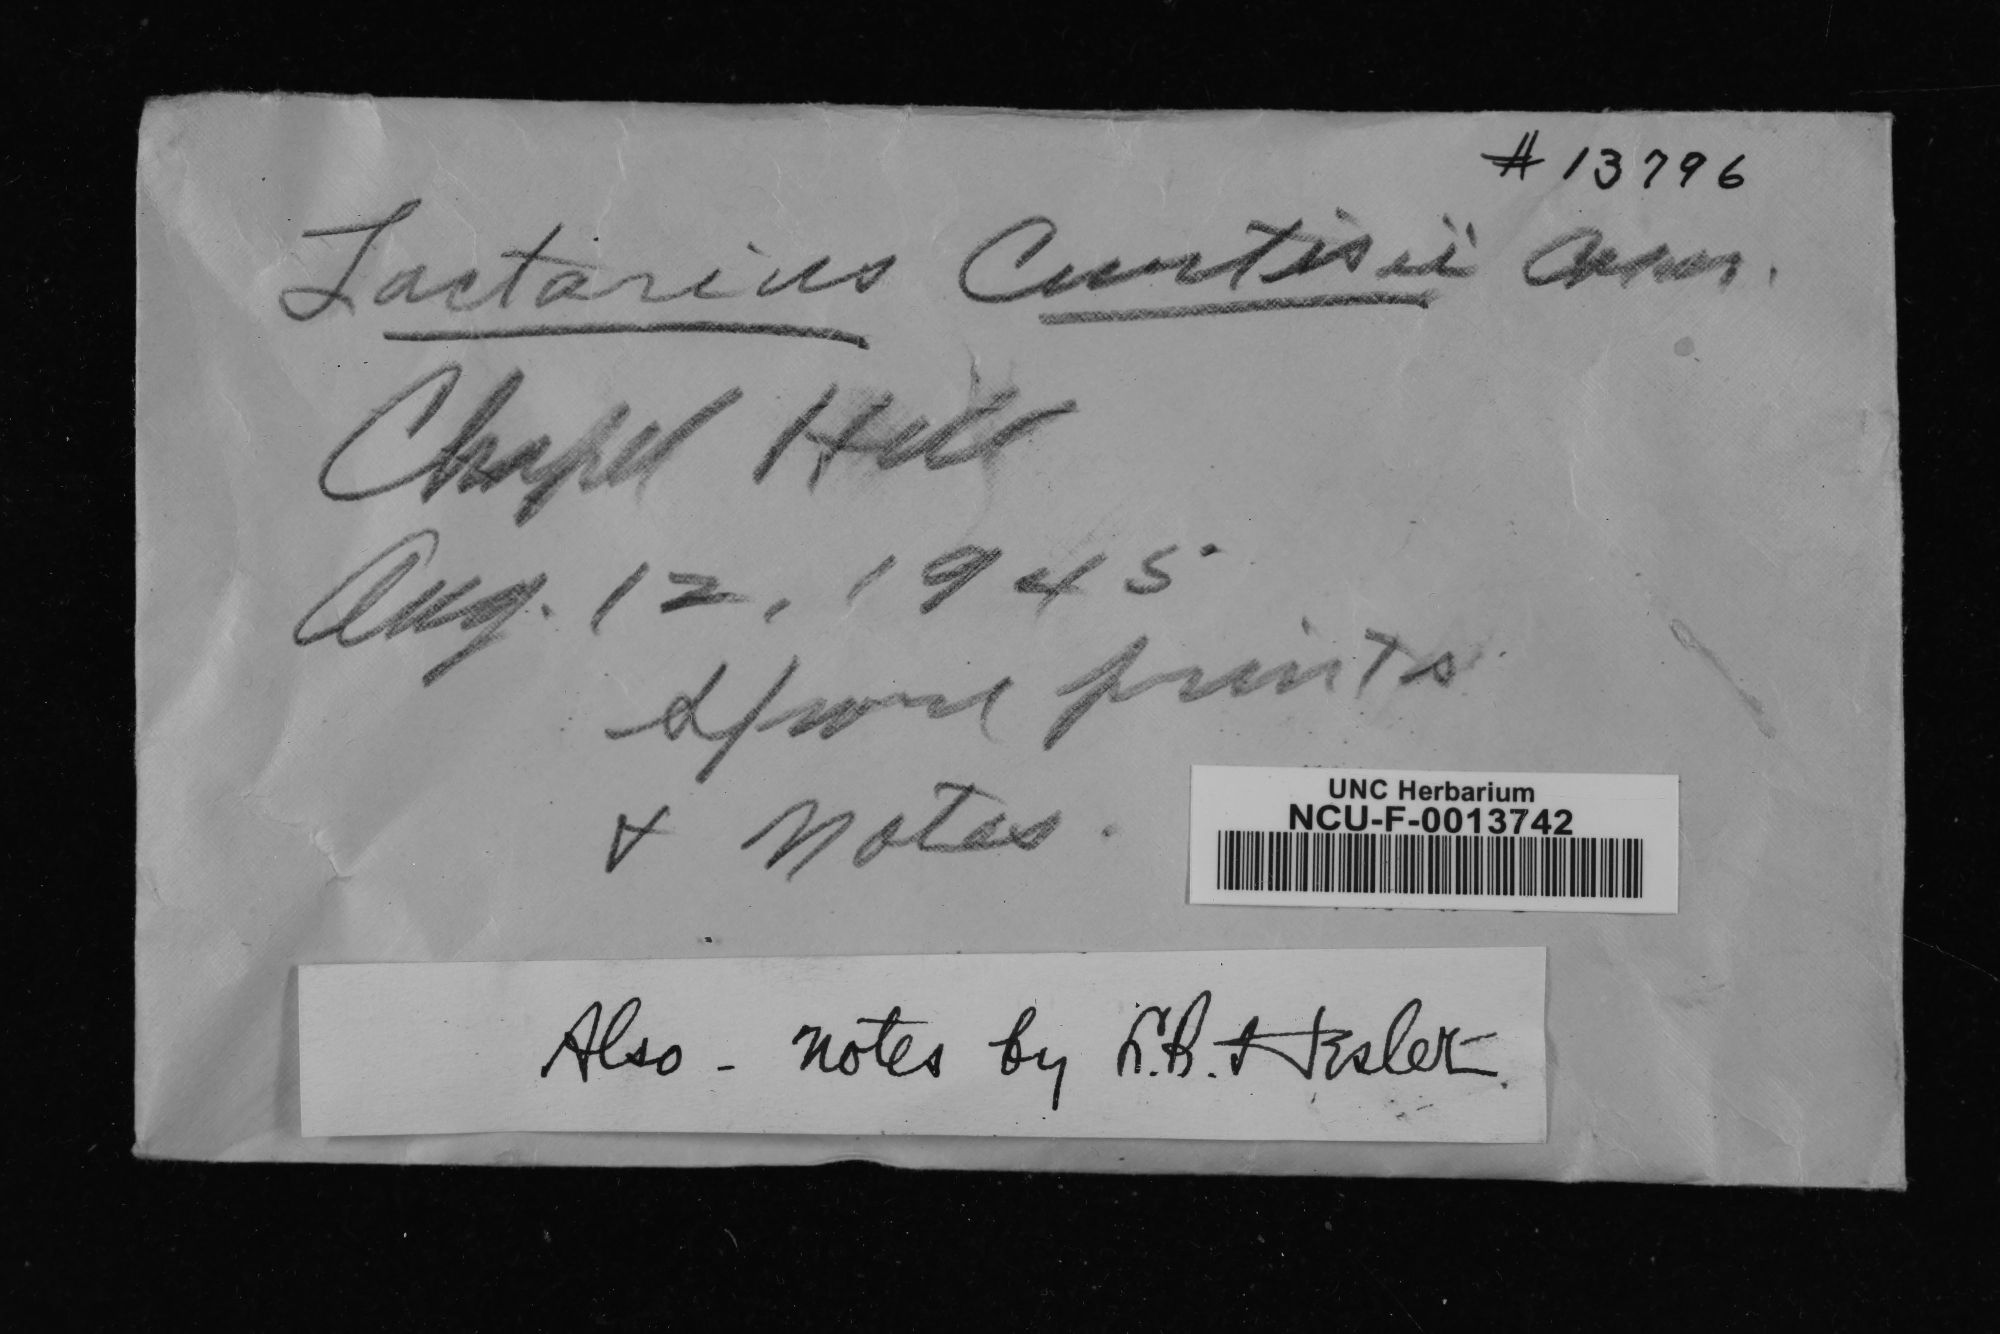 # 13796
Lactarius Curtisii
Chapel Hill
Aug. 12, 1945
Spore prints
& Notes.
UNC Herbarium
NCU-F-0013742
Also - notes by L.R. Hesler.